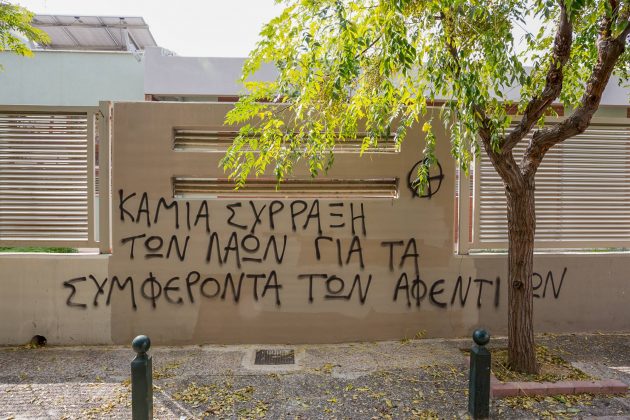 ΚΑΜΙΑ ΣΥΡΡΑΞΗ
ΤΩΝ ΛΑΩΝ ΓΙΑ ΤΑ
ΣΥΜΦΕΡΟΝΤΑ ΤΩΝ ΑΦΕΝΤΙΚΩΝ